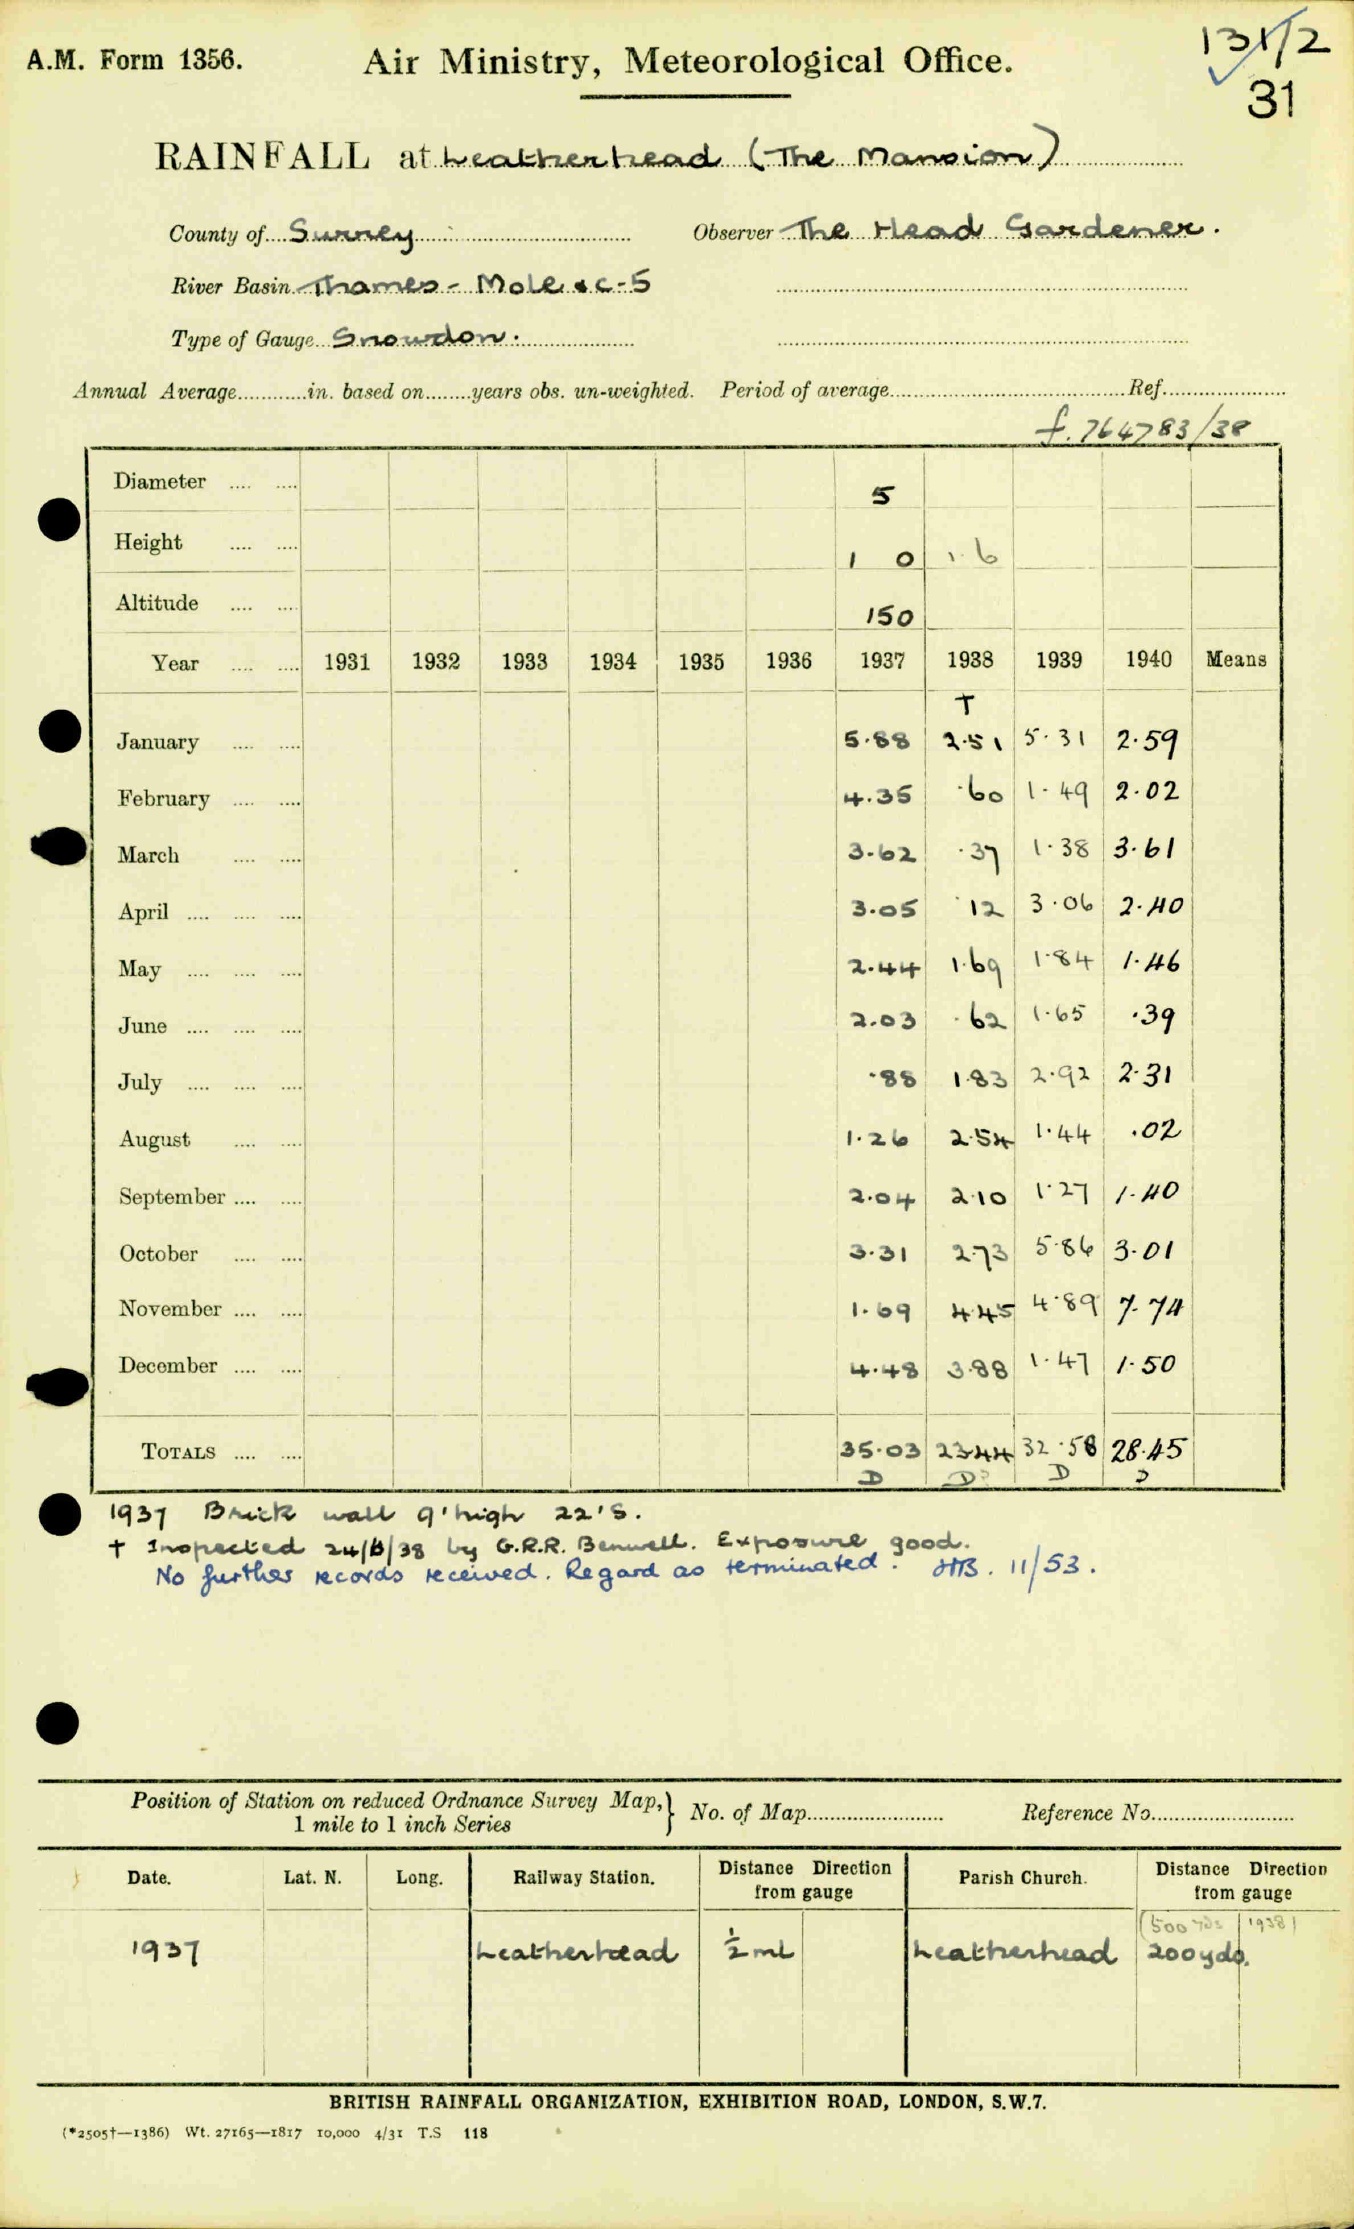 131/2
A.M. Form 1356. Air Ministry, Meteorological Office.
31
RAINFALL at Leatherhead (The Mansion)
County of Surrey Observer The Head Gardener.
River Basin Thames - Mole &c-5
Type of Gauge Snowdon.
Annual Average............in. based on........years obs. un-weighted. Period of average........................................Ref.....................
f.764783/38
Diameter .... .... 5
Height .... .... 1 0 1.6
Altitude .... .... 150
Year .... .... 1931 1932 1933 1934 1935 1936 1937 1938 1939 1940 Means
†
January .... .... 5.88 2.51 5.31 2.59
February .... .... 4.35 .60 1.49 2.02
March .... .... 3.62 .37 1.38 3.61
April .... .... .... 3.05 .12 3.06 2.40
May .... .... .... 2.44 1.69 1.84 1.46
June .... .... .... 2.03 .62 1.65 .39
July .... .... .... .88 1.83 2.92 2.31
August .... .... 1.26 2.54 1.44 .02
September .... .... 2.04 2.10 1.27 1.40
October .... .... 3.31 2.73 5.86 3.01
November .... .... 1.69 4.45 4.89 7.74
December .... .... 4.48 3.88 1.47 1.50
TOTALS .... .... 35.03 23.44 32.58 28.45
D D? D D
1937 Brick wall 9' high 22' S.
† Inspected 24/6/38 by G.R.R. Benwell. Exposure good.
No further records received. Regard as terminated. 11/53.
Position of Station on reduced Ordnance Survey Map,} No. of Map........................ Reference No.........................
1 mile to 1 inch Series
Date. Lat. N. Long. Railway Station. Distance Direction from gauge Parish Church. Distance Direction from gauge
(500 yds 1938)
1937 Leatherhead ½ ml Leatherhead 200yds.
BRITISH RAINFALL ORGANIZATION, EXHIBITION ROAD, LONDON, S.W.7.
(*2505†—1386) Wt. 27165—1817 10,000 4/31 T.S 118